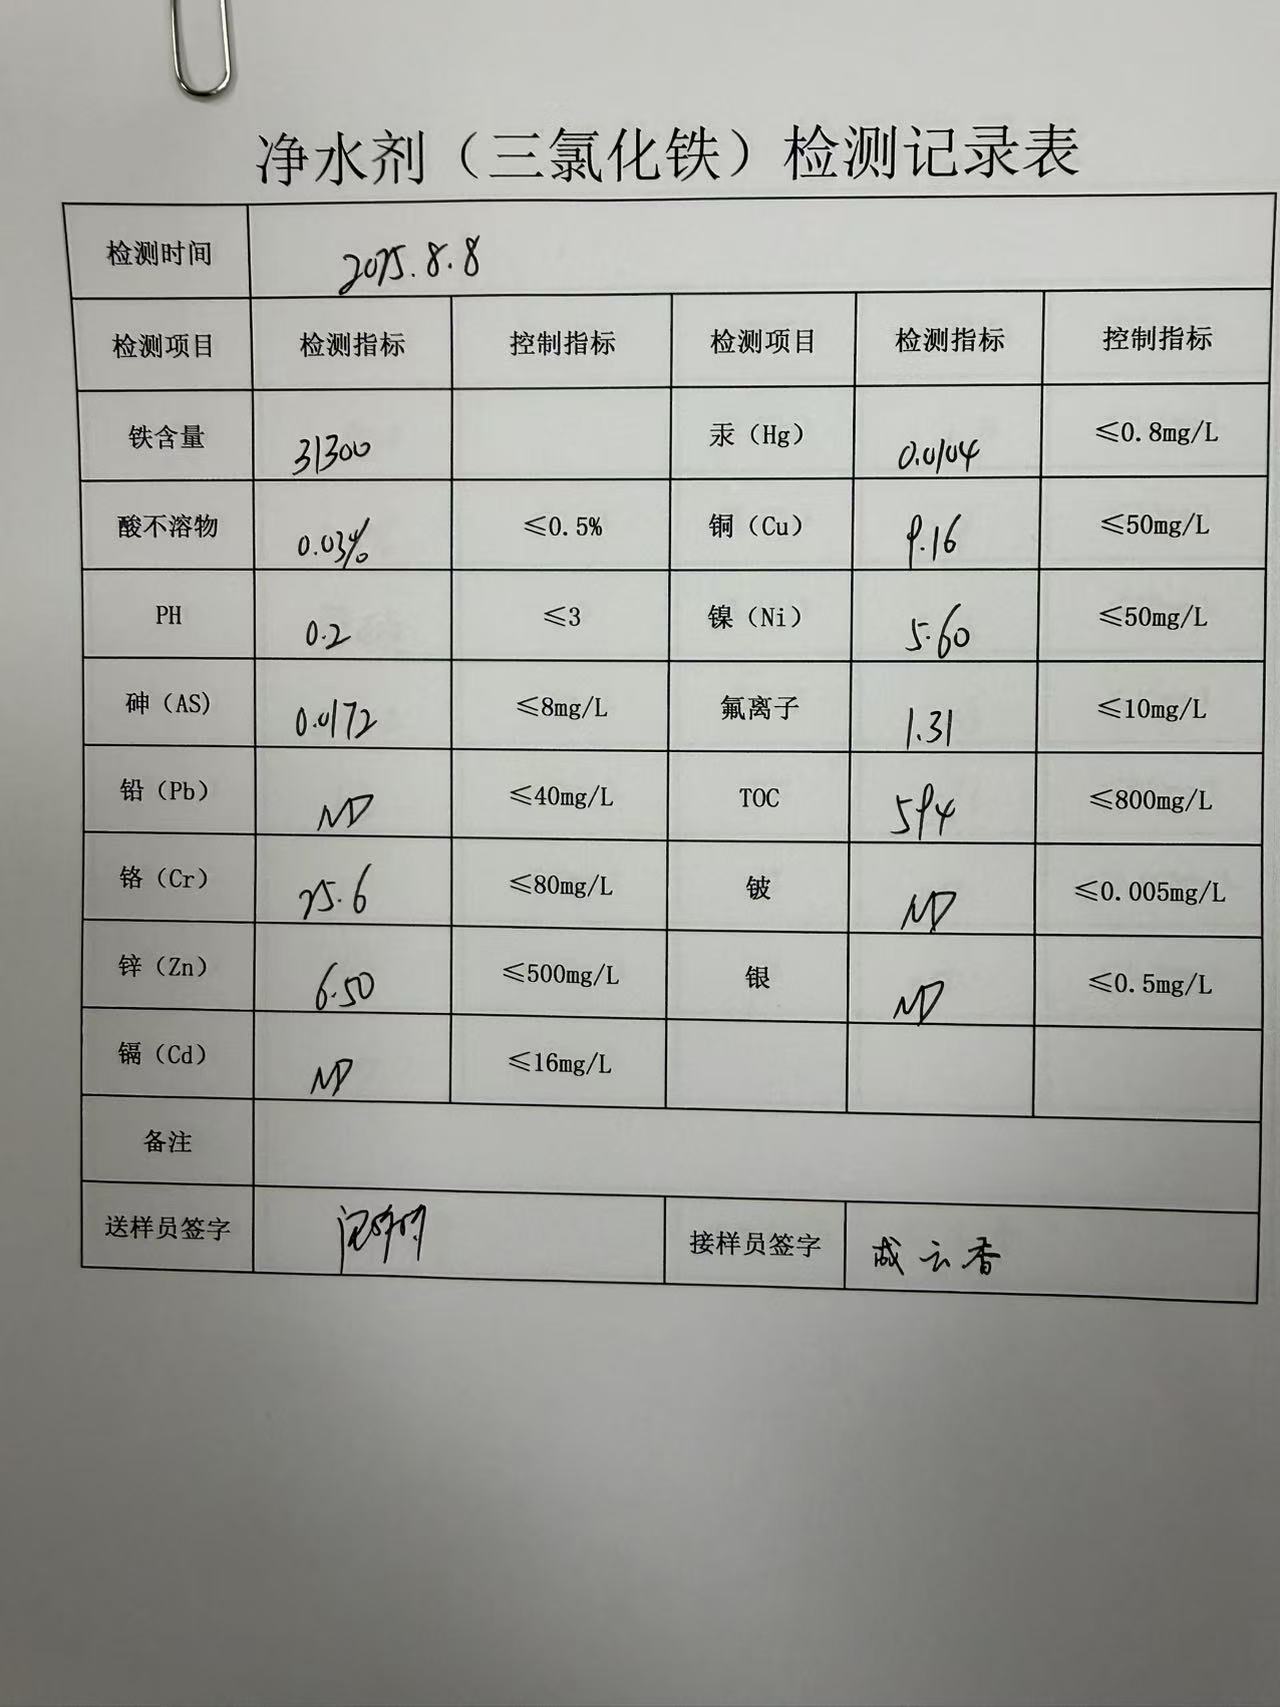 净水剂（三氯化铁）检测记录表
检测时间 2025.8.8
检测项目 检测指标 控制指标 检测项目 检测指标 控制指标
铁含量 31300 汞（Hg） 0.0104 ≤0.8mg/L
酸不溶物 0.03% ≤0.5% 铜（Cu） 9.16 ≤50mg/L
PH 0.2 ≤3 镍（Ni） 5.60 ≤50mg/L
砷（AS) 0.0172 ≤8mg/L 氟离子 1.31 ≤10mg/L
铅（Pb） ND ≤40mg/L TOC 594 ≤800mg/L
铬（Cr） 25.6 ≤80mg/L 铍 ND ≤0.005mg/L
锌（Zn） 6.50 ≤500mg/L 银 ND ≤0.5mg/L
镉（Cd） ND ≤16mg/L
备注
送样员签字 接样员签字 成云香